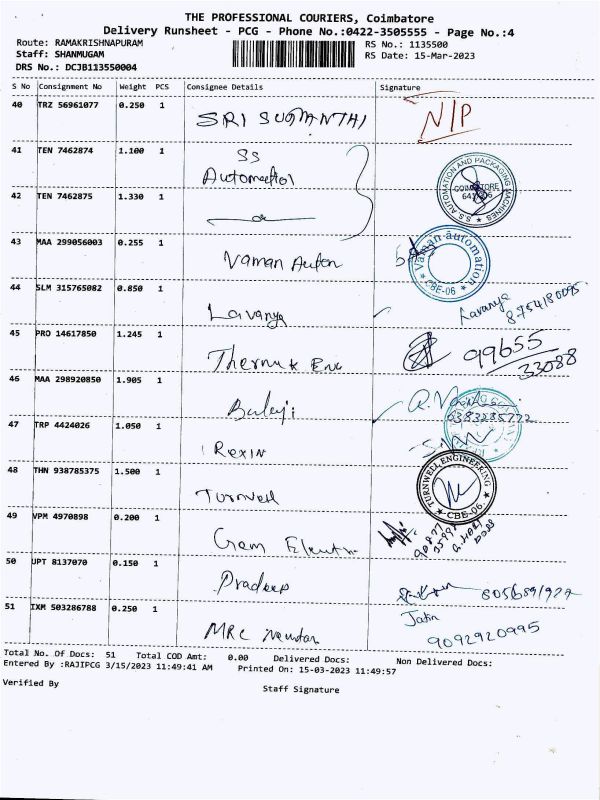 THE PROFESSIONAL COURIERS, Coimbatore
Delivery Runsheet - PCG - Phone No.:0422-3505555 - Page No.:4
Route: RAMAKRISHNAPURAM RS No.: 1135500
Staff: SHANMUGAM RS Date: 15-Mar-2023
DRS No.: DCJB113550004
S No Consignment No Weight PCS Consignee Details Signature
40 TRZ 56961077 0.250 1 SRI SUGANTHI N/P
41 TEN 7462874 1.100 1 SS
S.S. AUTOMATION AND PACKAGING MACHINES
COIMBATORE
42 TEN 7462875 1.330 1
43 MAA 299056003 0.255 1 Vaman Auton
Vaman automation
CBE-06
44 SLM 315765082 0.850 1 Lavanya Lavanya
45 PRO 14617850 1.245 1 99655
33088
46 MAA 298920850 1.905 1 Balaji
6383285722
47 TRP 4424026 1.050 1 Rexin
48 THN 938785375 1.500 1 Turnwell
TURNWELL ENGINEERING
CBE-06
49 VPM 4970898 0.200 1 Gem
50 UPT 8137070 0.150 1 Pradeep
51 IXM 503286788 0.250 1 MRC Jatin
9092920995
Total No. Of Docs: 51 Total COD Amt: 0.00 Delivered Docs: Non Delivered Docs:
Entered By :RAJIPCG 3/15/2023 11:49:41 AM Printed On: 15-03-2023 11:49:57
Verified By Staff Signature